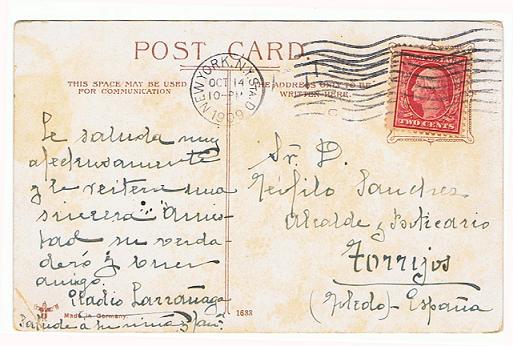 POST CARD.
THIS SPACE MAY BE USED
FOR COMMUNICATION
THE ADDRESS ONLY TO BE
WRITTEN HERE.
NEW YORK, N.Y. STA. D
OCT 14
10-PM
1909
TWO CENTS
Le saluda muy
afectuosamente
y le reitera una
sincera amis-
tad su verda-
dero y buen
amigo.
Eladio Larrañaga
Saluda a su niña y
Sr. D.
Teófilo Sanchez
Alcalde y Boticario
Torrijos
(Toledo)-España
Made in Germany.
1633